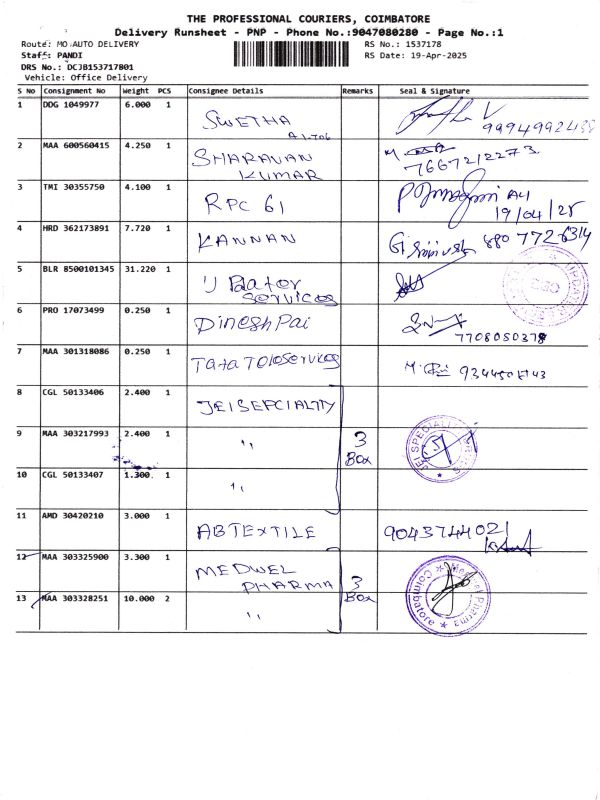 THE PROFESSIONAL COURIERS, COIMBATORE
Delivery Runsheet - PNP - Phone No.:9047080280 - Page No.:1
Route: MO AUTO DELIVERY RS No.: 1537178
Staff: PANDI RS Date: 19-Apr-2025
DRS No.: DCJB153717801
Vehicle: Office Delivery
S No Consignment No Weight PCS Consignee Details Remarks Seal & Signature
1 DDG 1049977 6.000 1 SWETHA
A1-706
2 MAA 600560415 4.250 1 SHARAVAN
KUMAR 7667212273
3 TMI 30355750 4.100 1 RPC 61
19/04/25
4 HRD 362173891 7.720 1 KANNAN
5 BLR 8500101345 31.220 1
Services
6 PRO 17073499 0.250 1 Dinesh Pai
7708050378
7 MAA 301318086 0.250 1 Tata
8 CGL 50133406 2.400 1 JEISEPCIALITY
9 MAA 303217993 2.400 1 " 3
Box JEI SPECIALITY
10 CGL 50133407 1.300 1 "
11 AMD 30420210 3.000 1 ABTEXTILE 9043744021
12 MAA 303325900 3.300 1 MEDWEL
PHARMA 3
Box Pharma
Coimbatore
13 MAA 303328251 10.000 2 "